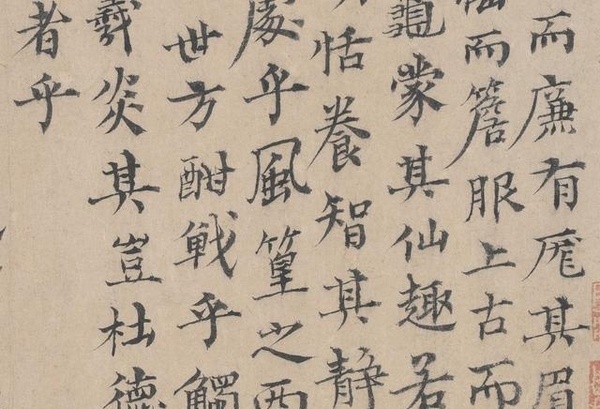 而廉有厖其眉
而簷服上古而
蒙其仙趣若
恬養智其静
處乎風篁之西
世方酣戰乎觸
羲炎其豈杜德
者乎